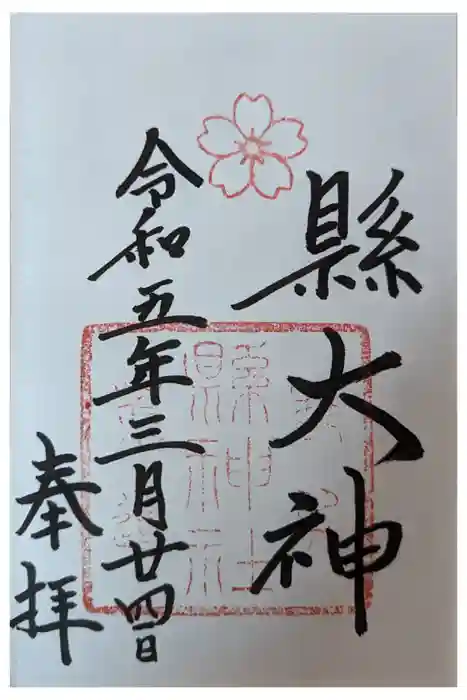 縣大神
令和五年三月廿四日
奉拝